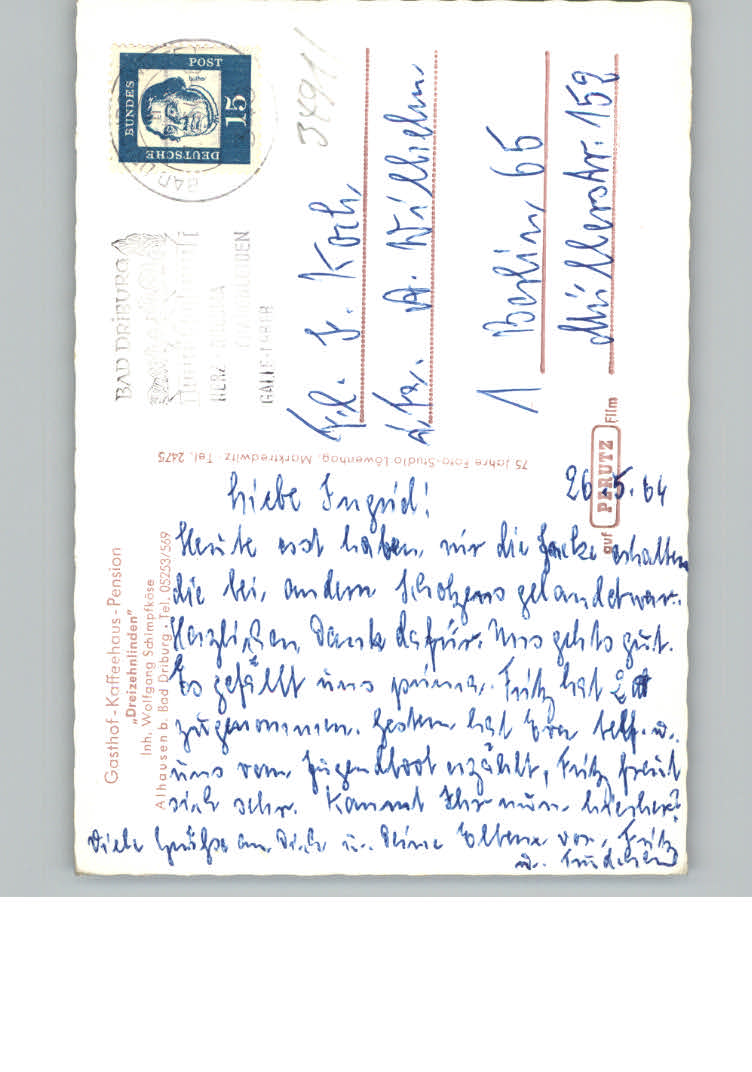 DEUTSCHE
BUNDES
POST
15
34911
BAD DRIBURG
HERZ
GALLE-LEBER
Frl. J. Koch
b. Fa. A. Wilhelm
1 Berlin 65
Müllerstr. 152
75 Jahre Foto-Studio Löwenhag, Marktredwitz · Tel. 2475
auf PERUTZ Film
Gasthof - Kaffeehaus - Pension
„Dreizehnlinden"
Inh. Wolfgang Schimpfköse
Alhausen b. Bad Driburg · Tel. 05253/569
26.5.64
Liebe Ingrid!
Heute erst haben wir die Jacke erhalten
die bei andern gelandet war.
Herzlichen Dank dafür. Uns gehts gut.
Es gefällt uns prima. Fritz hat 2
zugenommen. Gestern hat Eva telf. u.
uns vom Jugendboot erzählt, Fritz freut
sich sehr. Kommt Ihr nun hierher?
Viele Grüße an Dich u. Deine Eltern von Fritz
u.